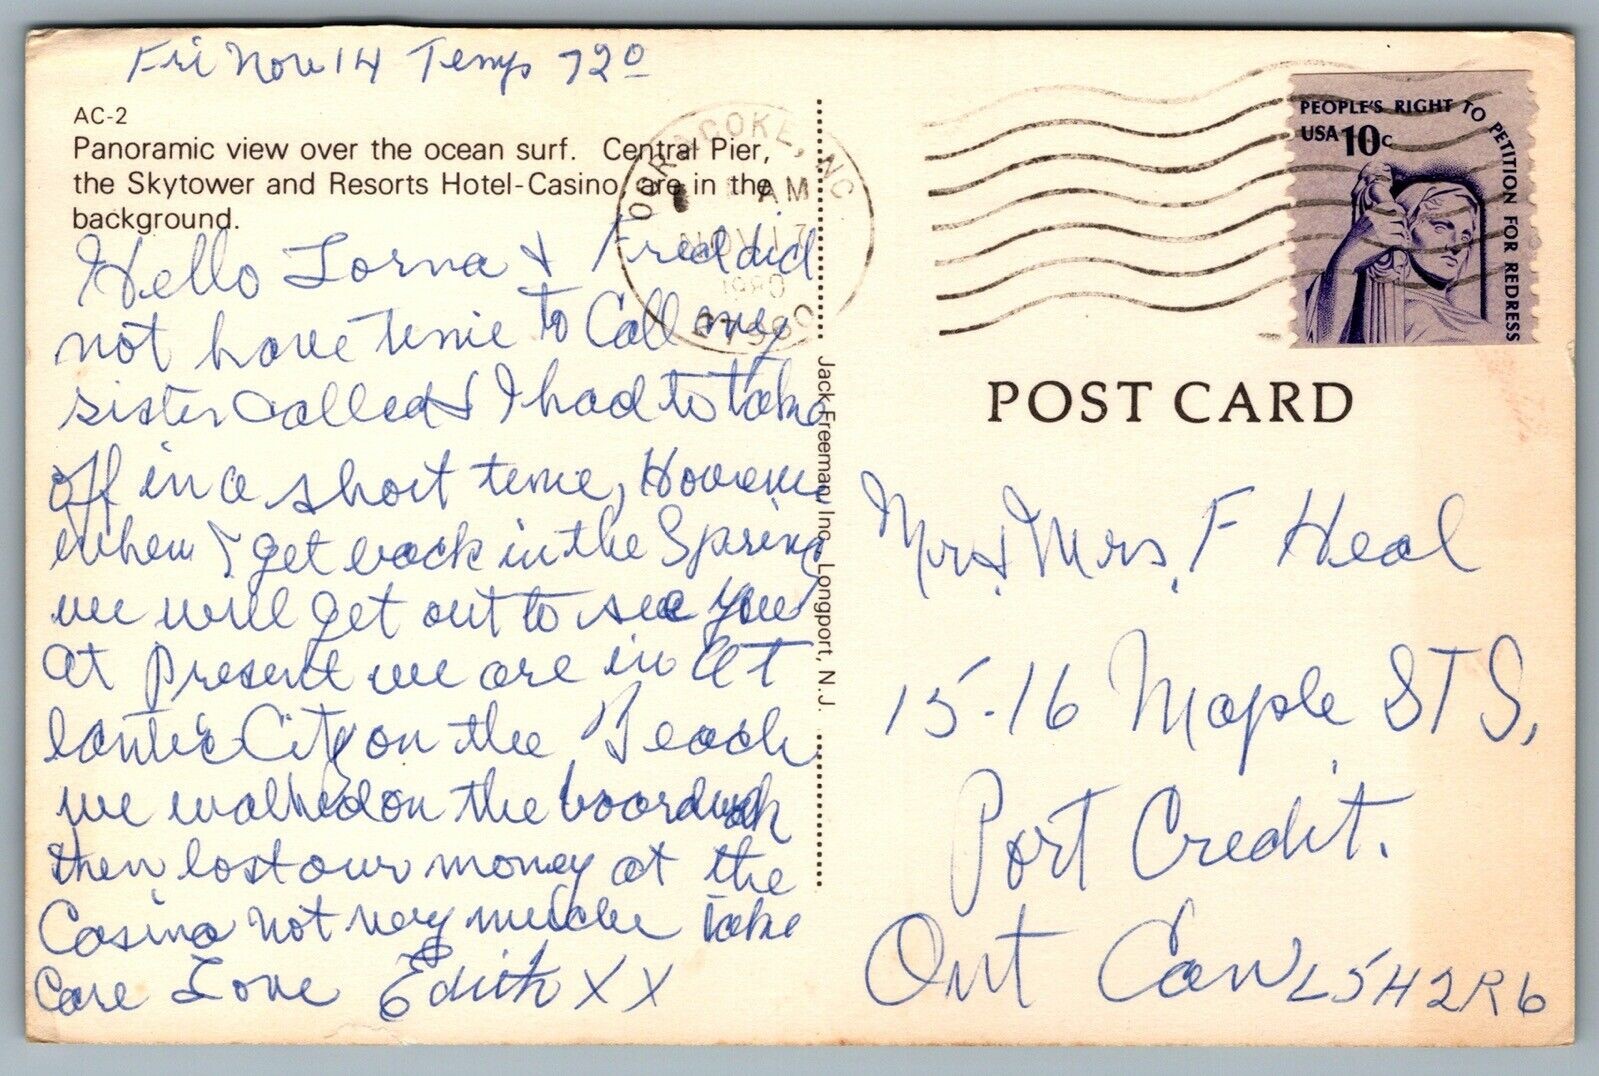 Fri Nov 14 Temp 72º
AC-2
Panoramic view over the ocean surf. Central Pier,
the Skytower and Resorts Hotel-Casino, are in the
background.
Hello Lorna & Fred did
not have time to Call my
sister Called & I had to take
off in a short time, However
when I get back in the Spring
we will get out to see you
At present we are in At
lantic City on the Beach
we walked on the boardwalk
then lost our money at the
Casino not very much Take
Care Love Edith XX
Jack Freeman, Inc. Longport, N.J.
OCRACOKE, NC
AM
17 NOV
1980
27960
PEOPLE'S RIGHT TO PETITION FOR REDRESS
USA 10c
POST CARD
Mr & Mrs. F Heal
15-16 Maple ST S,
Port Credit.
Ont Can L5H2R6